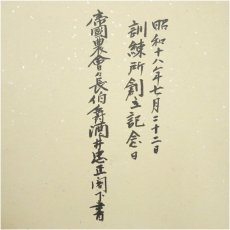 昭和十八年七月二十二日
訓練所創立記念日
帝國農會々長伯爵酒井忠正閣下書